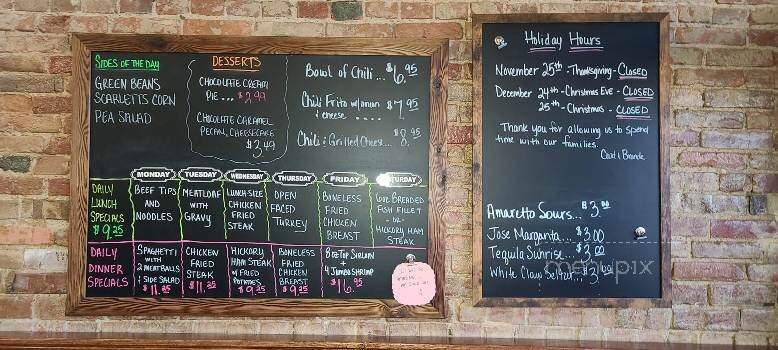 SIDES OF THE DAY
GREEN BEANS
SCARLETTS CORN
PEA SALAD
DESSERTS
CHOCOLATE CREAM
PIE ... $2.99
CHOCOLATE CARAMEL
PECAN CHEESECAKE
$3.49
BOWL OF CHILI ... $6.95
CHILI FRITO W/ONION $7.95
& CHEESE ....
CHILI & GRILLED CHEESE... $8.95
MONDAY TUESDAY WEDNESDAY THURSDAY FRIDAY SATURDAY
DAILY
LUNCH
SPECIALS
$9.25
BEEF TIPS
AND
NOODLES
MEATLOAF
WITH
GRAVY
LUNCH-SIZE
CHICKEN
FRIED
STEAK
OPEN
FACED
TURKEY
BONELESS
FRIED
CHICKEN
BREAST
BREADED
FISH FILLET
-OR-
HICKORY HAM
STEAK
DAILY
DINNER
SPECIALS
SPAGHETTI
WITH
2 MEATBALLS
& SIDE SALAD
$11.25
CHICKEN
FRIED
STEAK
$11.25
HICKORY
HAM STEAK
W/FRIED
POTATOES
$9.25
BONELESS
FRIED
CHICKEN
BREAST
$9.25
8oz TOP SIRLOIN
+
4 JUMBO SHRIMP
$16.95
Holiday Hours
November 25th - Thanksgiving - CLOSED
December 24th - Christmas Eve - CLOSED
25th - Christmas - CLOSED
Thank you for allowing us to spend
time with our families.
Amaretto Sours... $3.00
Jose Margarita... $3.00
Tequila Sunrise... $3.00
White Claw Seltzer...
menupix